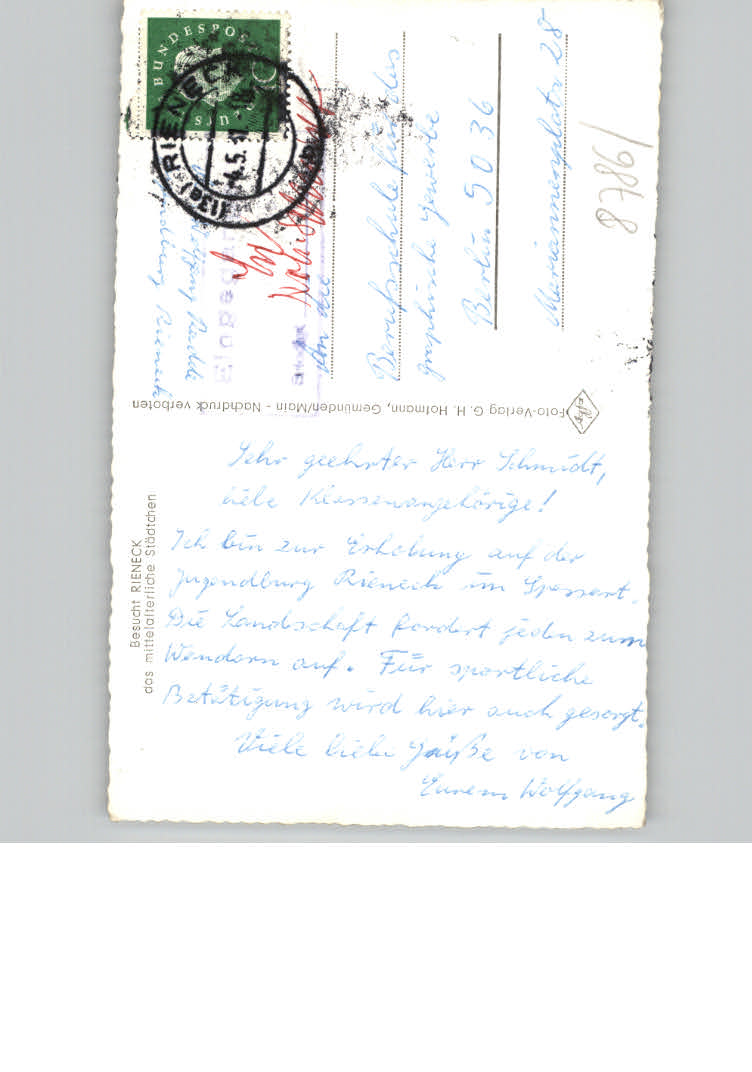 Sehr geehrter Herr Schmidt,
liebe Klassenangehörige!
Ich bin zur Erholung auf der
Jugendburg Rieneck im Spessart.
Die Landschaft fordert jeden zum
Wandern auf. Für sportliche
Betätigung wird hier auch gesorgt.
Viele liebe Grüße von
Eurem Wolfgang
Besucht RIENECK
das mittelalterliche Städtchen
Foto-Verlag G. H. Hofmann, Gemünden/Main - Nachdruck verboten
An die
Berufsschule für das
graphische Gewerbe
Berlin SO 36
Mariannenplatz 28
Wolfgang
Jugendburg Rieneck
Eingegang
BUNDESPOST
(13a) RIENECK
4.5.
19878